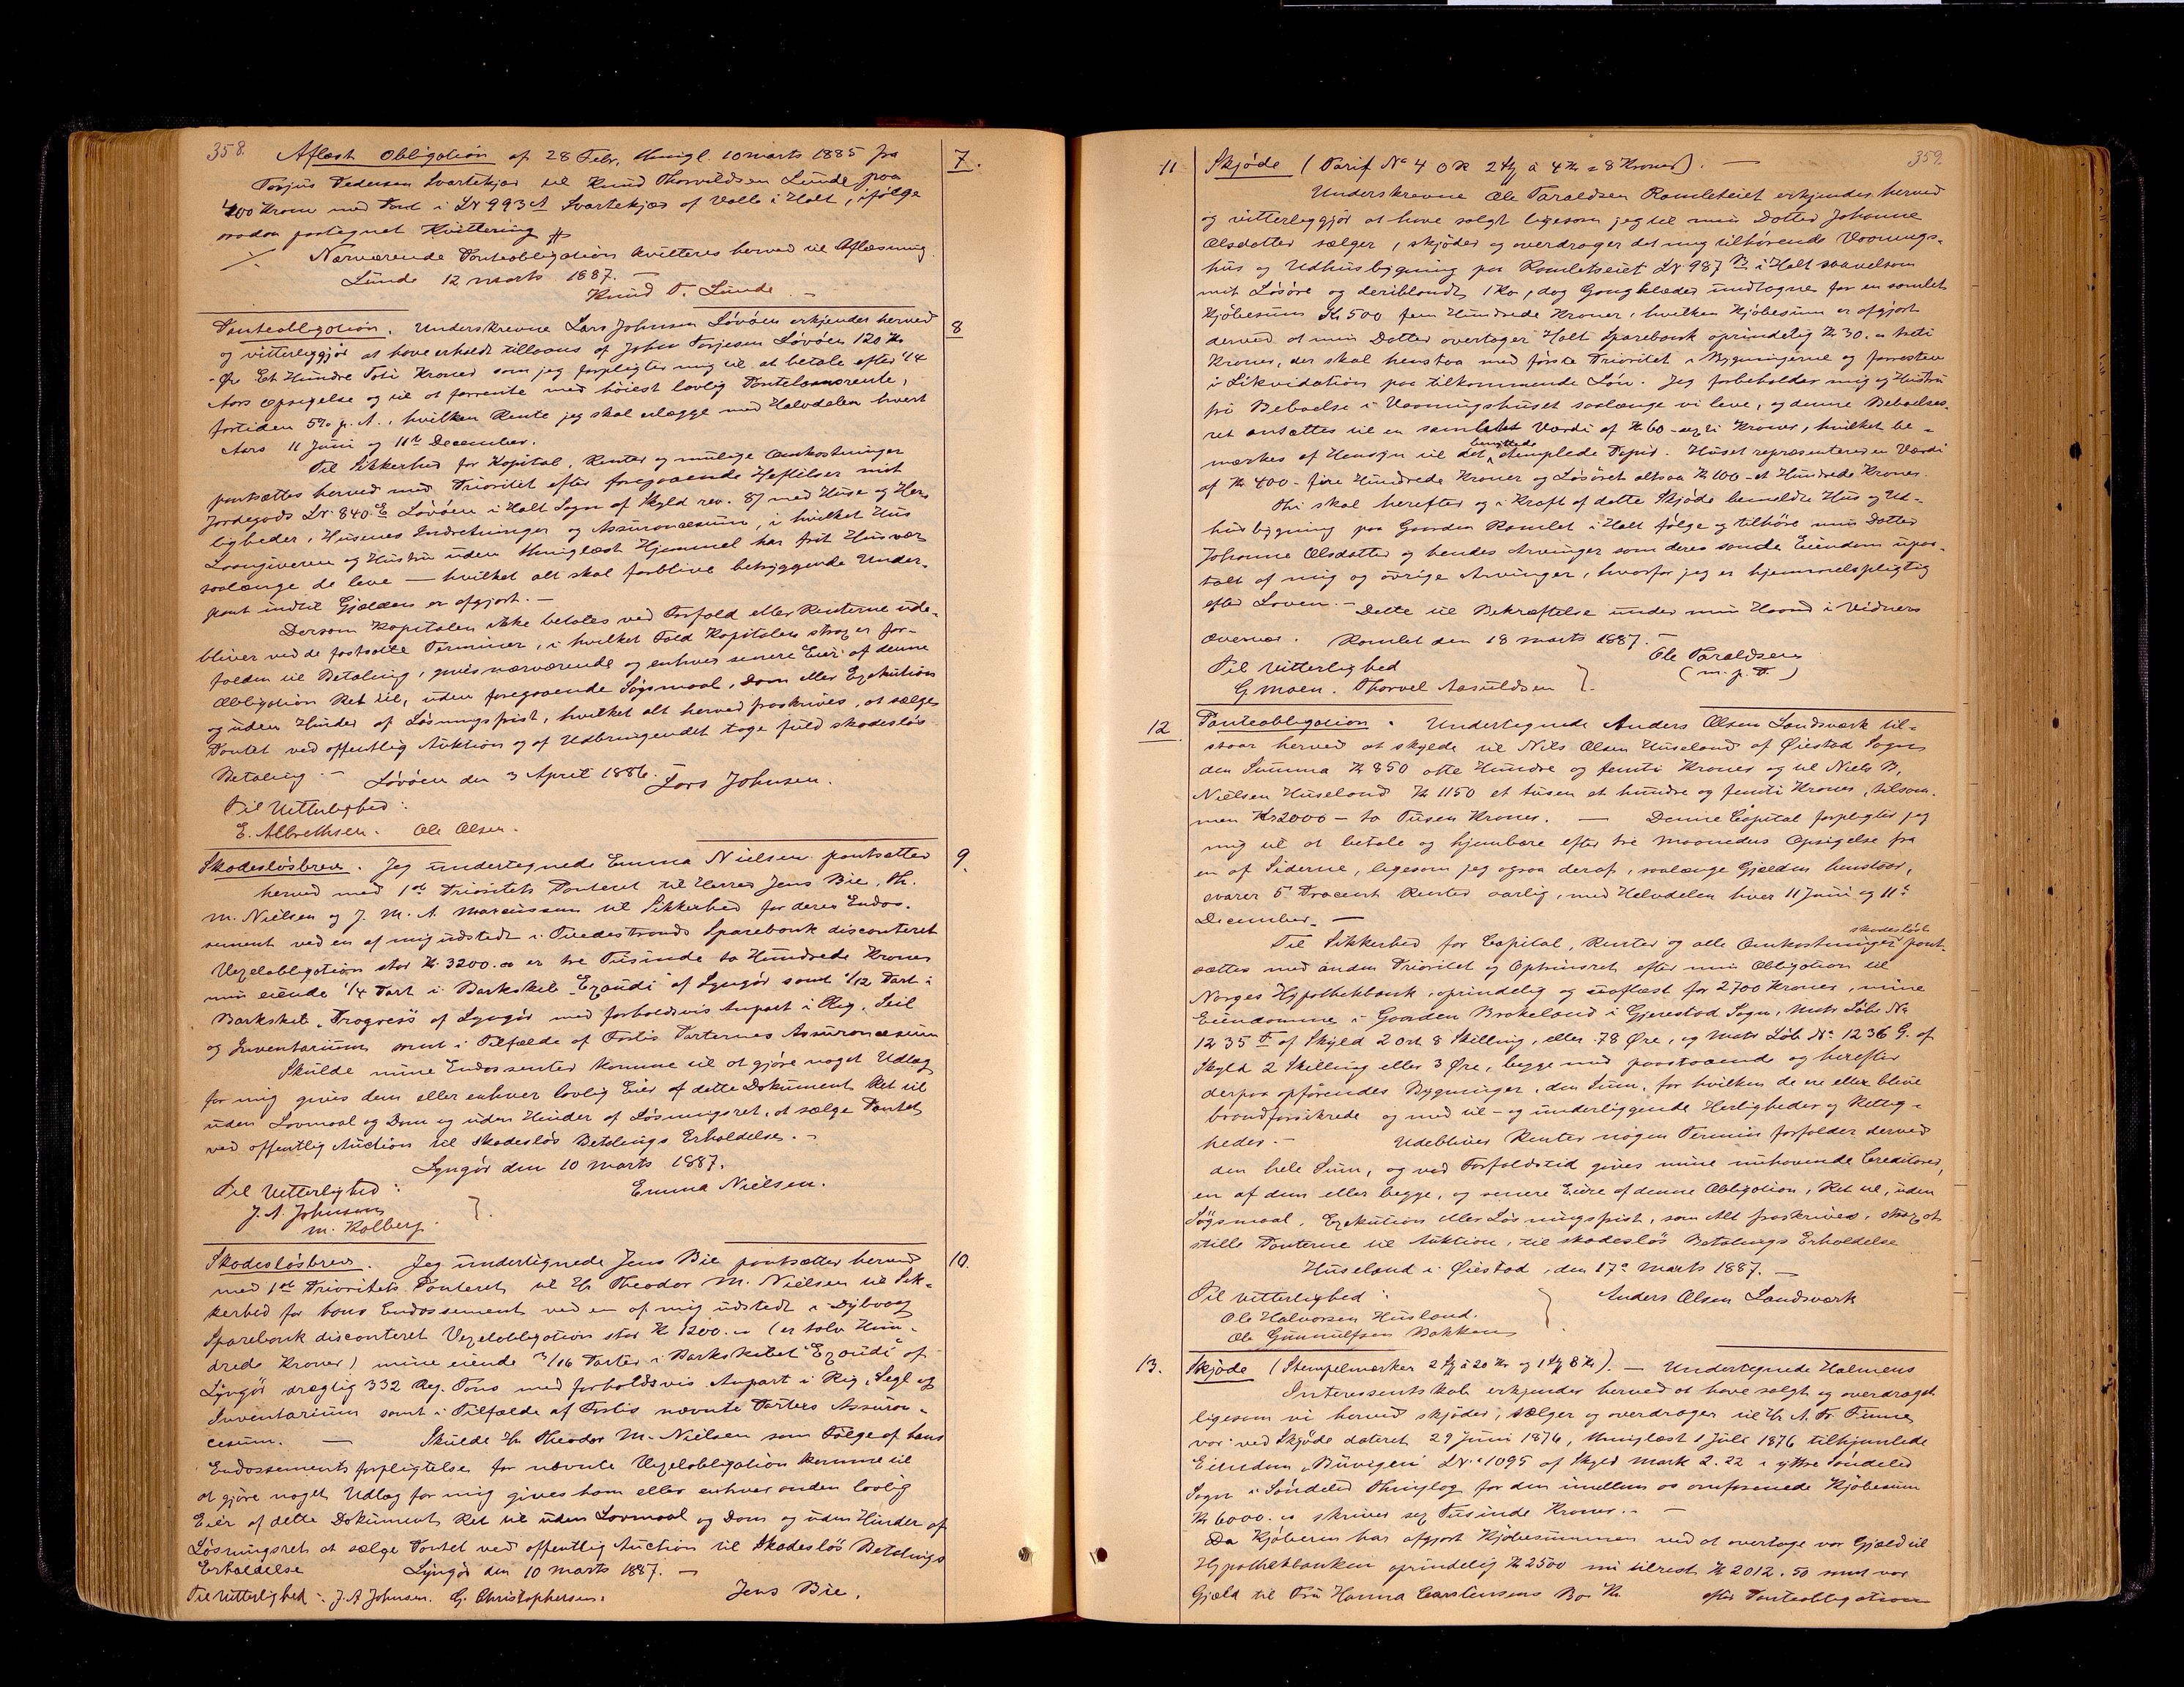 358.
Aflæst Obligation af 28 Febr, thingl. 10 marts 1885 fra
7.
Torjus Pedersen Svartekjær til Knud Thorvildsen Lunde paa
400 Kroner med Pant i LN 993 A Svartekjær af Valle i Holt, ifølge
paategnet Kvittering
Nærværende Panteobligation kvitteres herved til Aflæsning
Lunde 12 marts 1887. –
Knud T. Lunde –
Panteobligation. Underskrevne Lars Johnsen Løvøen erkjender herved
8
og vitterliggjør at have erholdt tillaans af John Torjesen Løvøen 120 Kr
Øre Et Hundre Toti Kroner som jeg forpligter mig til at betale efter 1/4
Aars Opsigelse og til at forrente med høiest lovlig Pantelaansrente,
fortiden 5% p. A., hvilken Rente jeg skal erlægge med Halvdelen hvert
Aars 11 Juni og 11te December.
Til Sikkerhed for Kapital, Renter og mulige Omkostninger
pantsættes herved med Prioritet efter foregaaende Heftelser mit
Jordegods LN. 840 E Løvøen i Holt Sogn af Skyld rev. 87 med Huse og Her
ligheder, Husenes Indretninger og Assurancesum, i hvilket Hus
Laangiveren og Hustru uden thinglæst Hjemmel har frit Husvær
saalænge de leve – hvilket alt skal forblive betryggende Under-
pant indtil Gjælden er afgjort. –
Dersom Kapitalen ikke betales ved Forfald eller Renterne ude-
bliver ved de fastsatte Terminer, i hvilket Fald Kapitalen strax er for-
falden til Betaling, gives nærværende og enhver senere Eier af denne
Obligation Ret til, uden foregaaende Søgsmaal, Dom eller Exekution
og uden Hinder af Løsningsfrist, hvilket alt herved fraskrives, at sælge
Pantet ved offentlig Auktion og af Udbringendet tage fuld skadesløs
Betaling. – Løvøen den 3 April 1886. Lars Johnsen.
Til Vitterlighed:
E. Albrethsen. Ole Olsen.
Skadesløsbrev. Jeg undertegnede Emma Nielsen pantsætter
9.
herved med 1ste Prioritets Panteret til Herrer Jens Bie, Th.
M. Nielsen og J. M. A. Marcussen til Sikkerhed for deres Endos-
sement ved en af mig udstedt i Tvedestrands Sparebank disconteret
Vexelobligation stor Kr. 3200.00 er tre Tusinde to Hundrede Kroner
min eiende 1/4 Part i Barkskib "Exaudi" af Lyngør samt 1/12 Part i
Barkskib "Progress" af Lyngør med forholdsvis Anpart i Rig, Seil
og Inventarium samt i Tilfælde af Forlis Parternes Assurancesum
Skulde mine Endossenter komme til at gjøre noget Udlæg
for mig gives dem eller enhver lovlig Eier af dette Dokument Ret til
uden Lovmaal og Dom og uden Hinder af Løsningsret, at sælge Pantet
ved offentlig Auction til skadesløs Betalings Erholdelse. –
Lyngør den 10 marts 1887.
Til Vitterlighed:
Emma Nielsen.
J. A. Johnsen
M. Kalberg.
Skadesløsbrev. Jeg undertegnede Jens Bie pantsætter herved
10.
med 1ste Prioritets Panteret til Hr Theodor M. Nielsen til Sik-
kerhed for hans Endossement ved en af mig udstedt i Dybvaag
Sparebank disconteret Vexelobligation stor Kr 1200.00 (er tolv Hun-
drede Kroner) mine eiende 3/16 Parter i Barkskibet "Exaudi" af
Lyngør drægtig 332 Reg. Tons med forholdsvis Anpart i Rig, Segl og
Inventarium samt i Tilfælde af Forlis nævnte Parters Assuran-
cesum. – Skulde Hr Theodor M. Nielsen som Følge af hans
Endossementsforpligtelse for nævnte Vexelobligation komme til
at gjøre noget Udlæg for mig gives ham eller enhver anden lovlig
Eier af dette Dokument Ret til uden Lovmaal og Dom og uden Hinder af
Løsningsret at sælge Pantet ved offentlig Auction til Skadesløs Betalings
Erholdelse Lyngør den 10 marts 1887. –
Til Vitterlighed: J. A Johnsen. G. Christophersen. Jens Bie.
359
11 Skjøde (Tarif No 4 2 à 4 Kr = 8 Kroner). –
Underskrevne Ole Taraldsen Ramleteiet erkjender herved
og vitterliggjør at have solgt ligesom jeg til min Datter Johanne
Olsdatter sælger, skjøder og overdrager det mig tilhørende Vaanings-
hus og Udhusbygning paa Ramleteiet LN. 987 B i Holt saavelsom
mit Løsøre og deriblandt 1 Ko, dog Gangklæder undtagne for en samlet
Kjøbesum Kr 500 fem Hundrede Kroner, hvilken Kjøbesum er afgjort
derved at min Datter overtager Holt Sparebank oprindelig Kr 30.00 treti
Kroner, der skal henstaa med første Prioritet i Bygningerne og forresten
i Likvidation paa tilkommende Løn. Jeg forbeholder mig og Hustru
fri Beboelse i Vaaningshuset saalænge vi leve, og denne Beboelses-
ret ansættes til en samlet Værdi af Kr 60 – sexti Kroner, hvilket be-
mærkes af Hensyn til det benyttede stemplede Papir. Huset repræsenterer en Værdi
af Kr 400 – fire Hundrede Kroner og Løsøret altsaa Kr 100 – et Hundrede Kroner.
Thi skal herefter og i Kraft af dette Skjøde bemeldte Hus og Ud-
husbygning paa Gaarden Ramlet i Holt følge og tilhøre min Datter
Johanne Olsdatter og hendes Arvinger som deres sande Eiendom upaa-
talt af mig og øvrige Arvinger, hvorfor jeg er hjemmelspligtig
efter Loven. – Dette til Bekræftelse under min Haand i Vidners
Overvær. Ramlet den 18 marts 1887. –
Til Vitterlighed
Ole Taraldsen
G Moen. Thorvel Aasuldsen
(m. p. P.)
12. Panteobligation. Undertegnede Anders Olsen Landsværk til-
staar herved at skylde til Nils Olsen Huseland af Øiestad Sogn
den Summa Kr 850 otte Hundre og femti Kroner og til Niels B.
Nielsen Huseland Kr 1150 et tusen et hundre og femti Kroner, tilsam-
men Kr 2000 – to Tusen Kroner. – Denne Capital forpligter jeg
mig til at betale og hjembære efter tre Maaneders Opsigelse fra
en af Siderne, ligesom jeg ogsaa deraf, saalænge Gjælden henstaar,
svarer 5 Procent Renter aarlig, med Halvdelen hver 11 Juni og 11te
December. –
Til Sikkerhed for Capital, Renter og alle Omkostninger skadesløst pant-
sættes med anden Prioritet og Optrinsret efter min Obligation til
Norges Hypothekbank, oprindelig og uaflæst for 2700 Kroner, mine
Eiendomme i Gaarden Brokeland i Gjerestad Sogn, Matr Løb. No
1235 F af Skyld 2 Ort 8 Skilling, eller 78 Øre, og Matr Løb No 1236 G. af
Skyld 2 Skilling eller 3 Øre, begge med paastaaende og herefter
derpaa opførendes Bygninger, den Sum, for hvilken de ere eller blive
brandforsikrede og med til – og underliggende Herligheder og Rettig-
heder. – Udebliver Renter nogen Termin forfalder derved
den hele Sum, og ved Forfaldstid gives mine nuhavende Creditorer,
en af dem eller begge, og senere Eiere af denne Obligation, Ret til, uden
Søgsmaal, Exekution eller Løsningsfrist, som Alt fraskrives, strax at
stille Panterne til Auktion, til skadesløs Betalings Erholdelse
Huseland i Øiestad, den 17de Marts 1887. –
Til Vitterlighed:
Anders Olsen Landsværk
Ole Halvorsen Husland.
Ole Gunnulfsen Bakken
13. Skjøde (Stempelmærker 2 à 20 Kr og 1 8 Kr). – Undertegnede Holmens
Interessentskab erkjender herved at have solgt og overdraget
ligesom vi herved skjøder, sælger og overdrager til Hr A. Fr. Finne
vor ved Skjøde dateret 29 Juni 1876, thinglæst 1 Juli 1876 tilhjemlede
Eiendom "Buvigen" LN. 1095 af Skyld Mark 2.22 i ytre Søndeled
Sogn i Søndeled Thinglag for den imellem os omforenede Kjøbesum
Kr 6000.00 skriver sex Tusinde Kroner. –
Da Kjøberen har afgjort Kjøbesummen ved at overtage vor Gjæld til
Hypothekbanken oprindelig Kr 2500 nu tilrest Kr 2012.50 samt vor
Gjæld til Fru Hanna Carstensens Bo Kr. efter Panteobligation